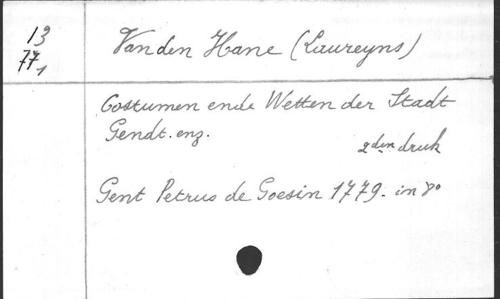 13
77,
Van den Hane (Laureyns)
Costumen ende Wetten der Stadt
Gendt. enz.
2den druk
Gent Petrus de Goesin 1779. in 8°